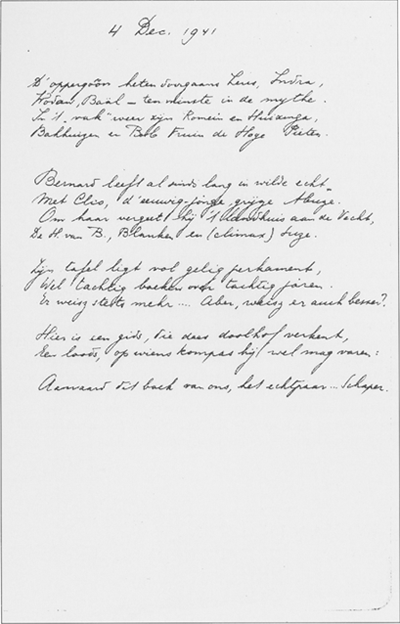 4 Dec. 1941
D'oppergoden heten doorgaans Zeus, Indra,
Wodan, Baäl – ten minste in de mythe.
In 't "vak" weer zijn Romein en Huizenga,
Bakhuizen en Bob Fruin de Hoge Pieten.
Bernard leeft al sinds lang in wilde echt
Met Clio, d'eeuwig-jonge, grijze
Om haar vergeet hij 't aan de Vecht,
De H. van B., Blanken en (climax)
Zijn tafel ligt vol gelig perkament,
Wel tachtig boeken over tachtig jaren.
Er weisz stets mehr .... Aber, weisz er auch besser?
Hier is een gids, die deez doolhof verkent,
Een loods, op wiens kompas hij wel mag varen:
Aanvaard dit boek van ons, het echtpaar ... Schaper.